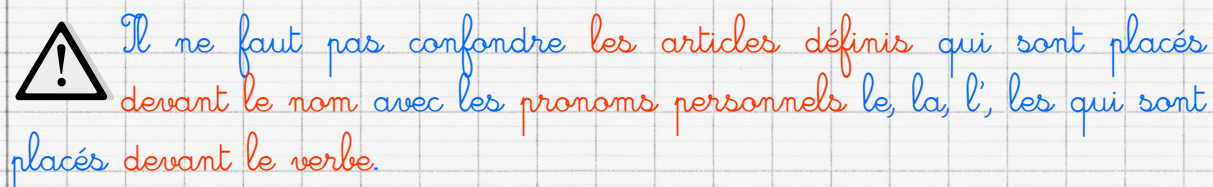 Il ne faut pas confondre les articles définis qui sont placés
devant le nom avec les pronoms personnels le, la, l', les qui sont
placés devant le verbe.